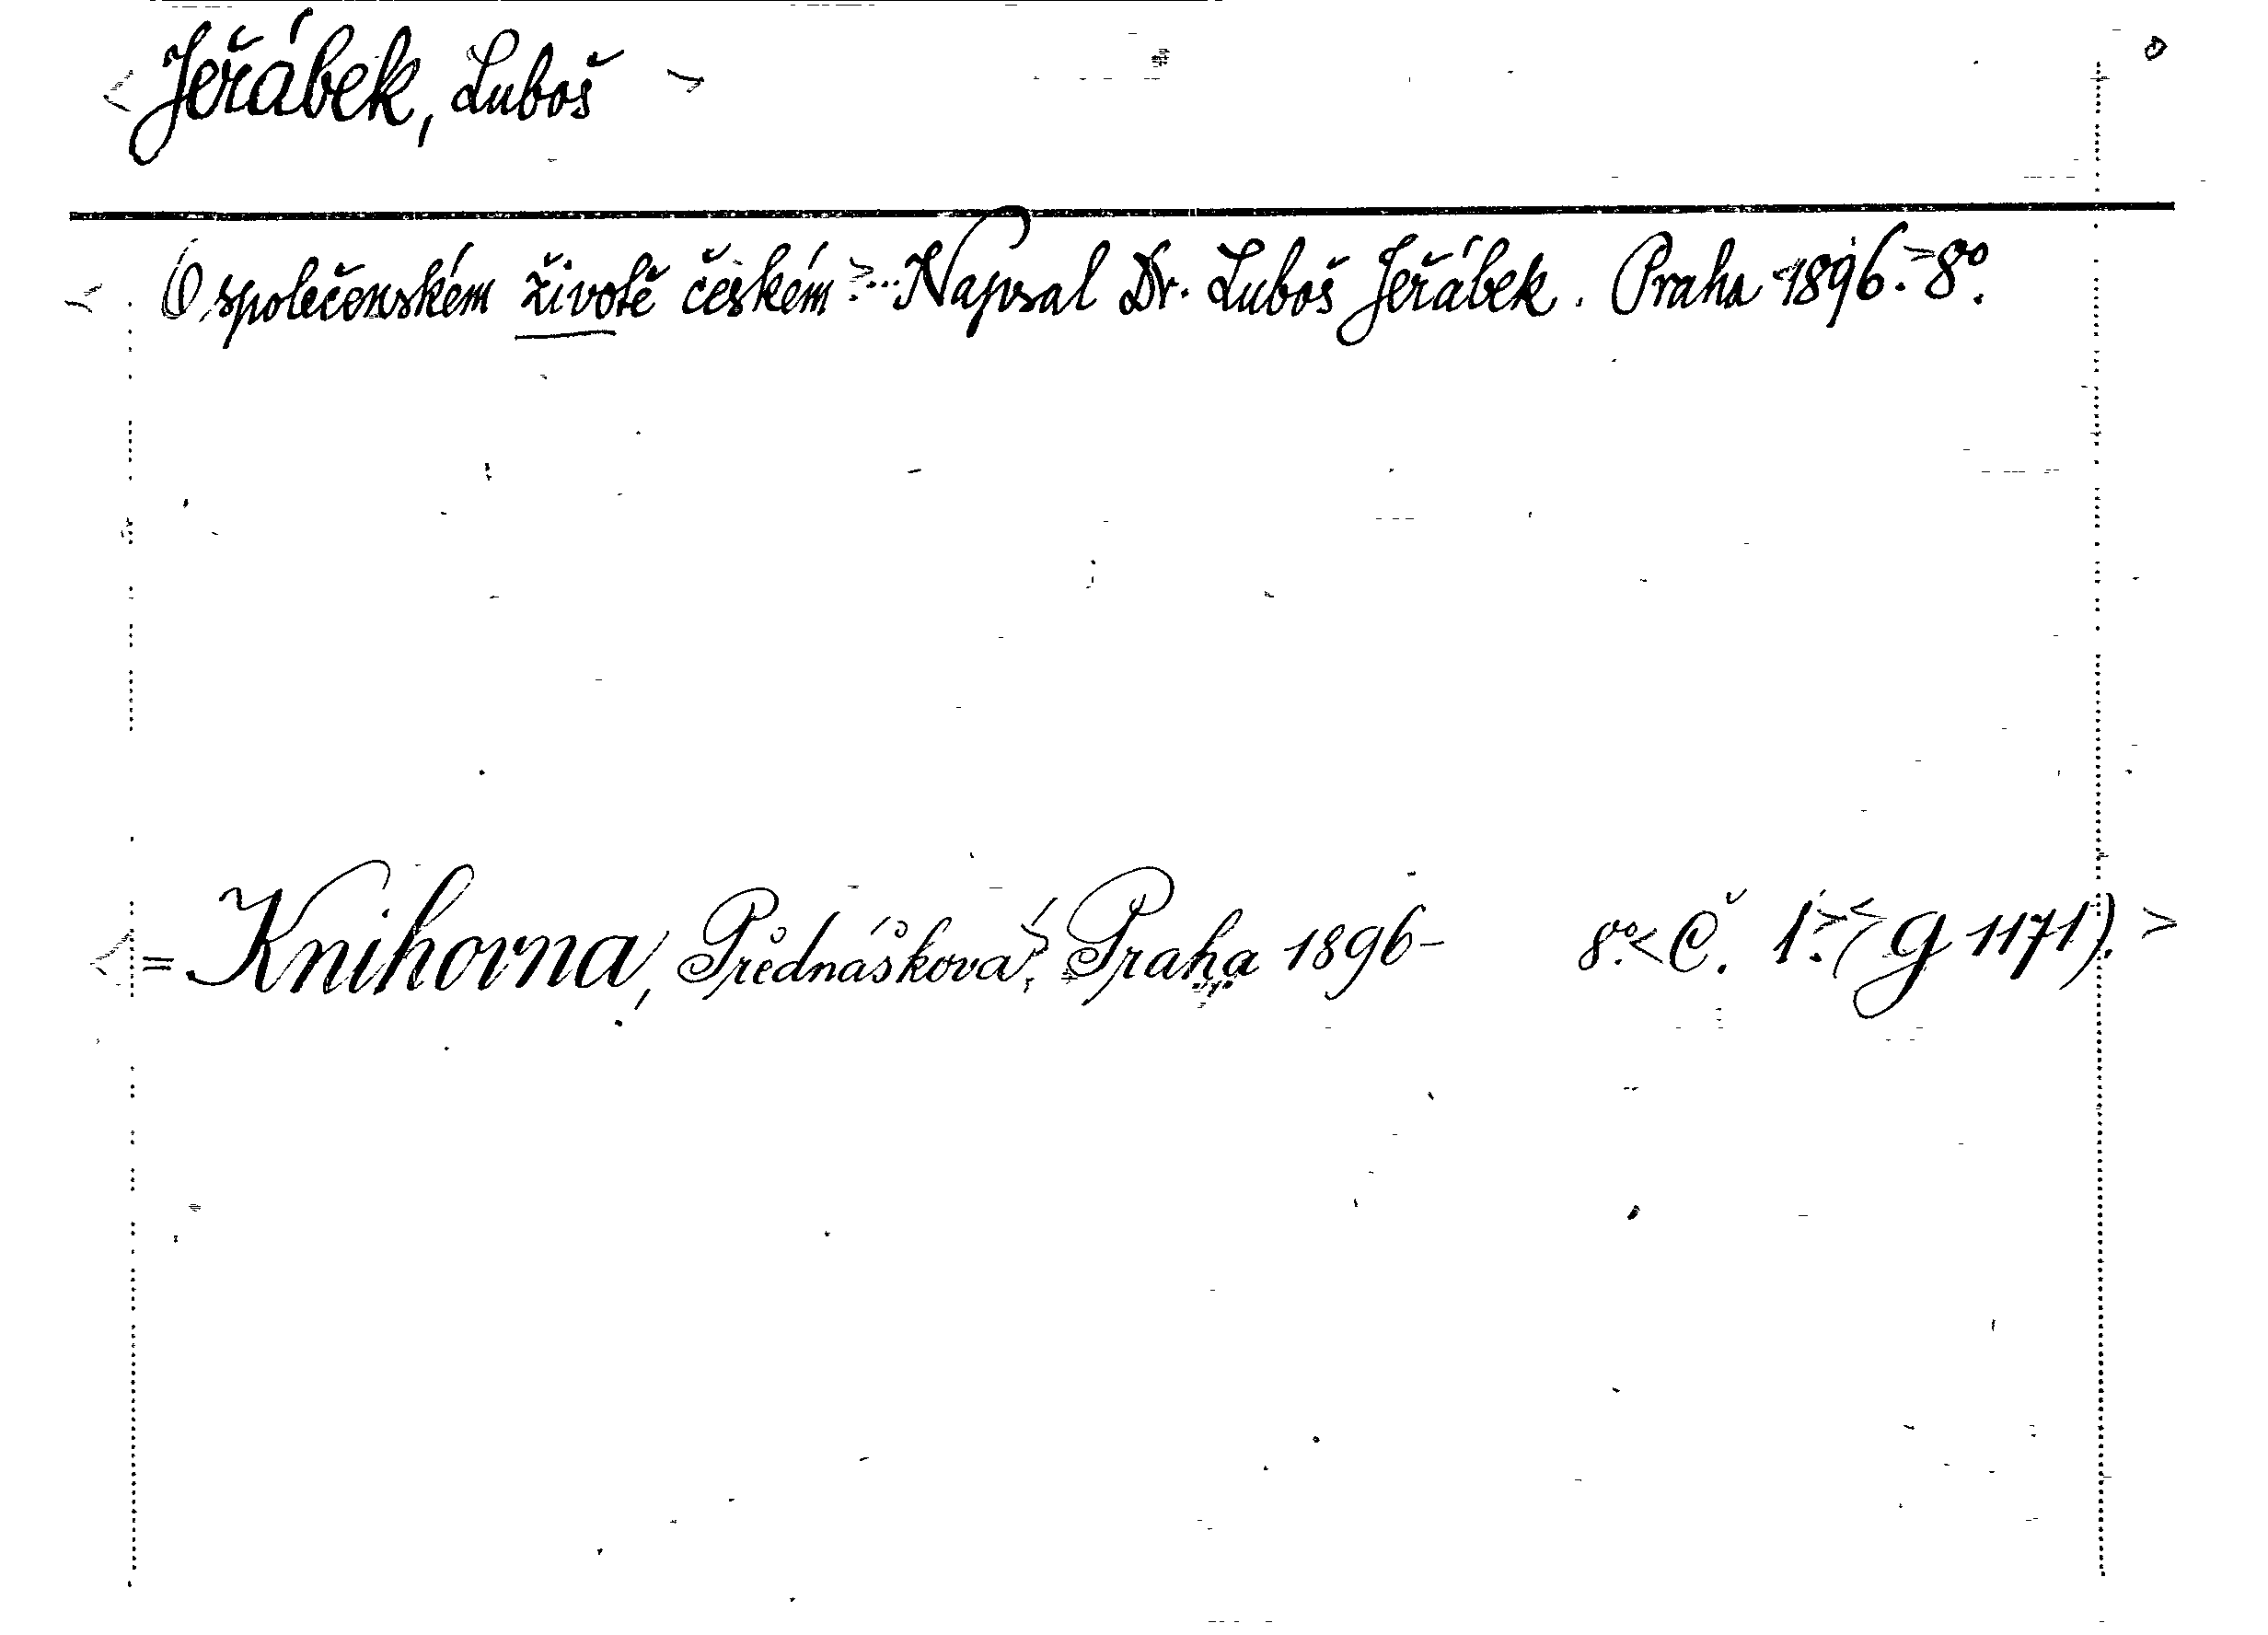 < Jeřábek, Luboš >
< O společenském životě českém >... Napsal Dr. Luboš Jeřábek. Praha 1896.> 8º.
< = Knihovna, Přednášková. Praha 1896- 8º.< Č. 1.> < (G 1171). >